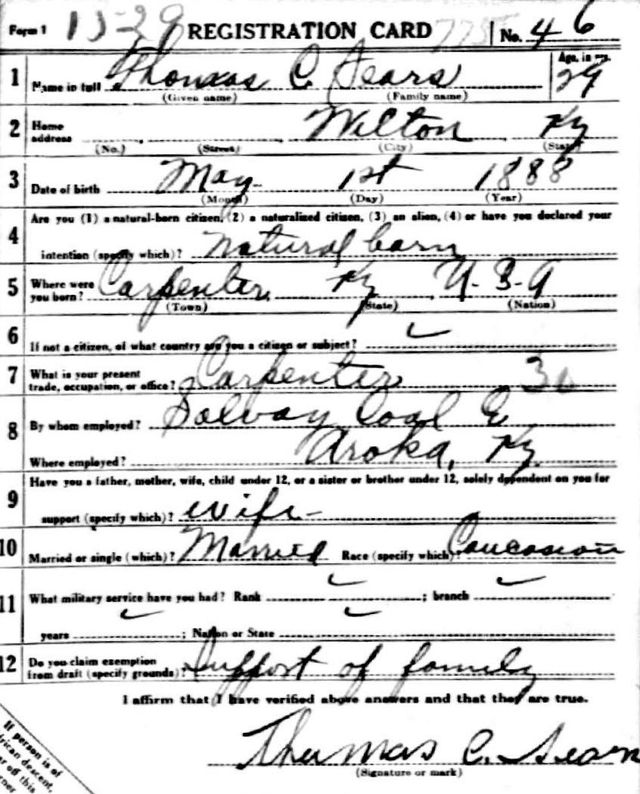 Form 1 13-29 REGISTRATION CARD No. 46
1 Name in full Thomas C Sears Age, in yrs. 29
(Given name) (Family name)
2 Home address Wilton Ky
(No.) (Street) (City) (State)
3 Date of birth May 1st 1888
(Month) (Day) (Year)
4 Are you (1) a natural-born citizen, (2) a naturalized citizen, (3) an alien, (4) or have you declared your
intention (specify which)? natural born
5 Where were you born? Carpenter Ky U.S.A
(Town) (State) (Nation)
6 If not a citizen, of what country are you a citizen or subject? ✓
7 What is your present trade, occupation, or office? Carpenter
8 By whom employed? Solvay Coal Co
Where employed? Aroka, Ky.
9 Have you a father, mother, wife, child under 12, or a sister or brother under 12, solely dependent on you for
support (specify which)? Wife -
10 Married or single (which)? Married Race (specify which) Caucasian
11 What military service have you had? Rank ✓ ; branch ✓
years ✓ ; Nation or State ✓
12 Do you claim exemption from draft (specify grounds)? Support of family
I affirm that I have verified above answers and that they are true.
Thomas C. Sears
(Signature or mark)
If person is of
African descent,
this